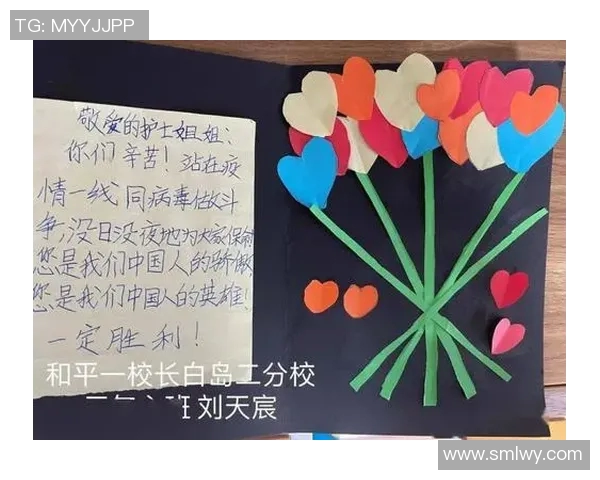 TG: MYYJJPP
敬爱的护士姐姐：
你们辛苦！站在疫
情一线同病毒做斗
争,没日没夜地为大家保命
您是我们中国人的骄傲,
您是我们中国人的英雄!
一定胜利！
和平一校长白岛二分校
班 刘天宸
www.smlwy.com